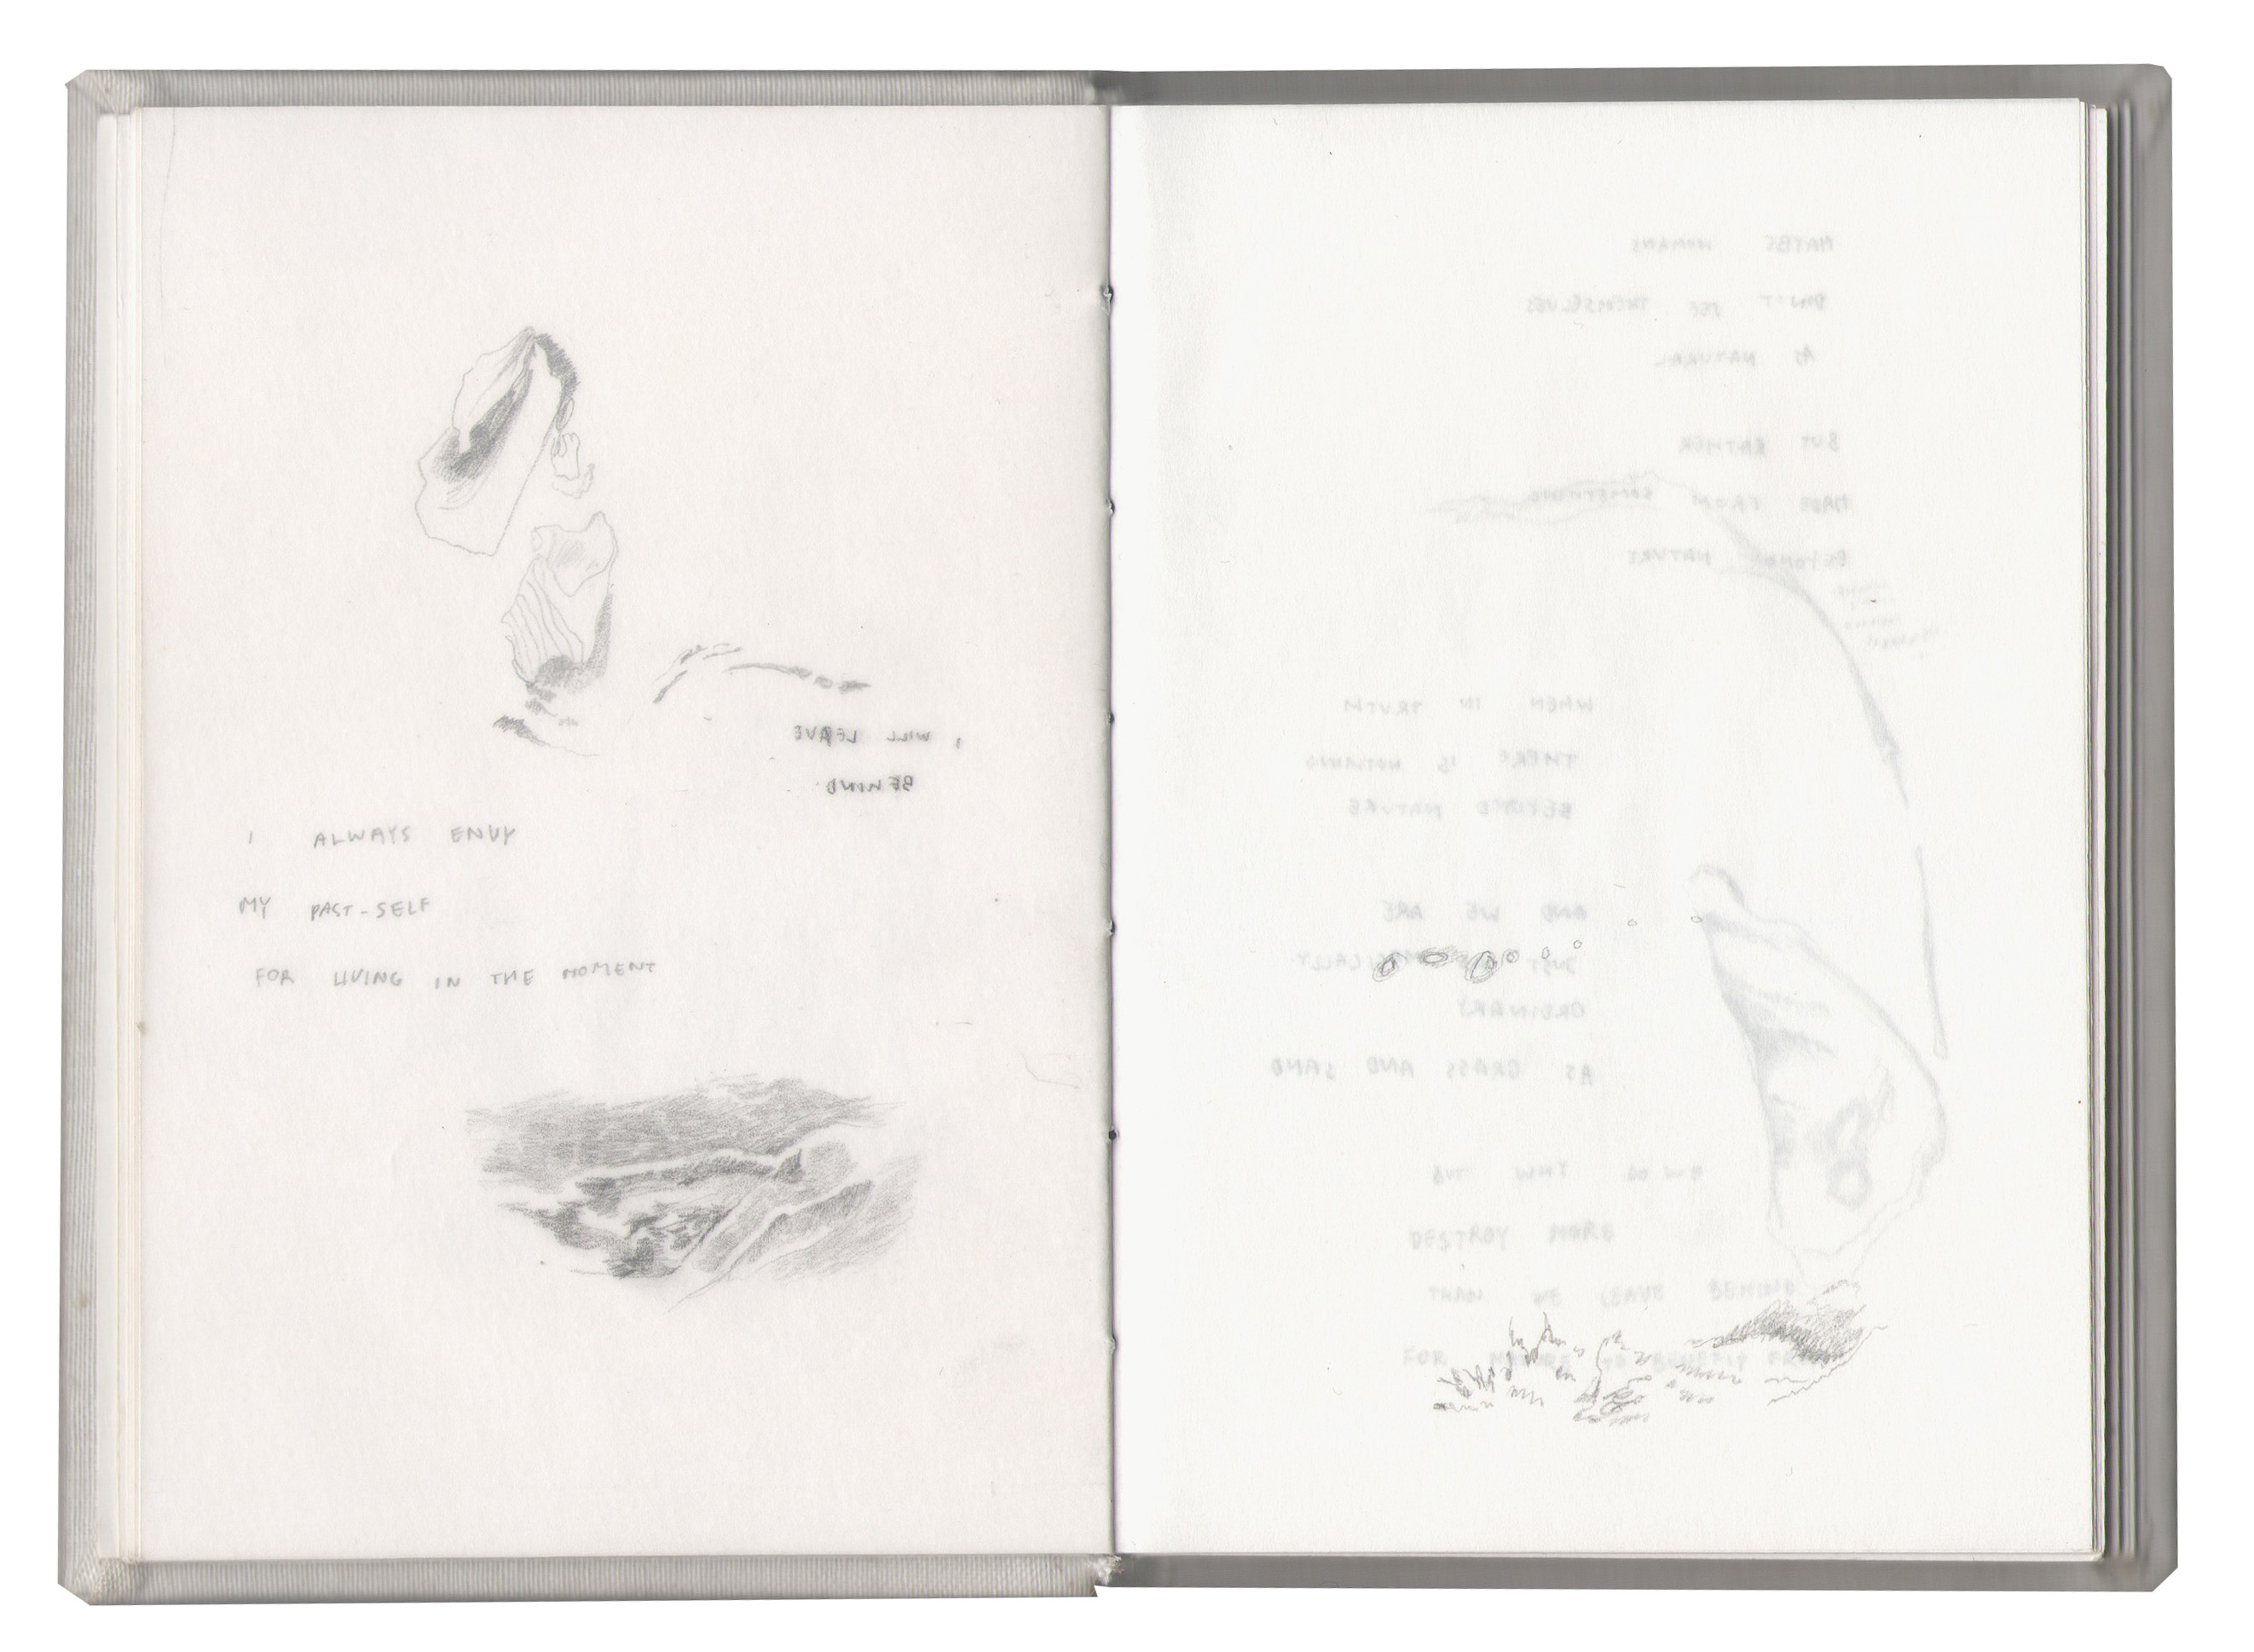 I WILL LEAVE
BEHIND
I ALWAYS ENVY
MY PAST-SELF
FOR LIVING IN THE MOMENT
MAYBE HUMANS
DON'T SEE THEMSELVES
AS NATURAL
BUT RATHER
MADE FROM SOMETHING
BEYOND NATURE
WHEN IN TRUTH
THERE IS NOTHING
BEYOND NATURE
AND WE ARE
JUST MAGICALLY
ORDINARY
AS GRASS AND SAND
BUT WHY DO WE
DESTROY MORE
THAN WE LEAVE BEHIND
FOR NATURE TO BENEFIT FROM